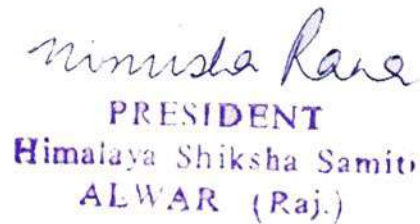 Nimisha Rana
PRESIDENT
Himalaya Shiksha Samiti
ALWAR (Raj.)